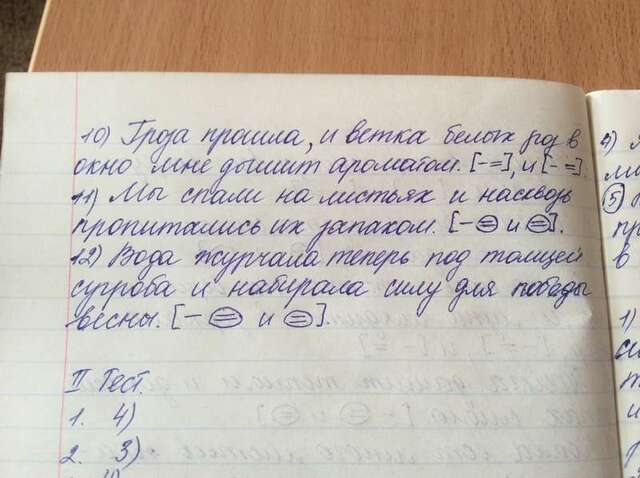 10) Гроза прошла, и ветка белых роз в
окно мне дышит ароматом. [- =], и [- =].
11) Мы спали на листьях и насквозь
пропитались их запахом. [- = и =].
12) Вода журчала теперь под толщей
сугроба и набирала силу для победы
весны. [- = и =].
II Тест.
1. 4)
2. 3)
4)
5
1)